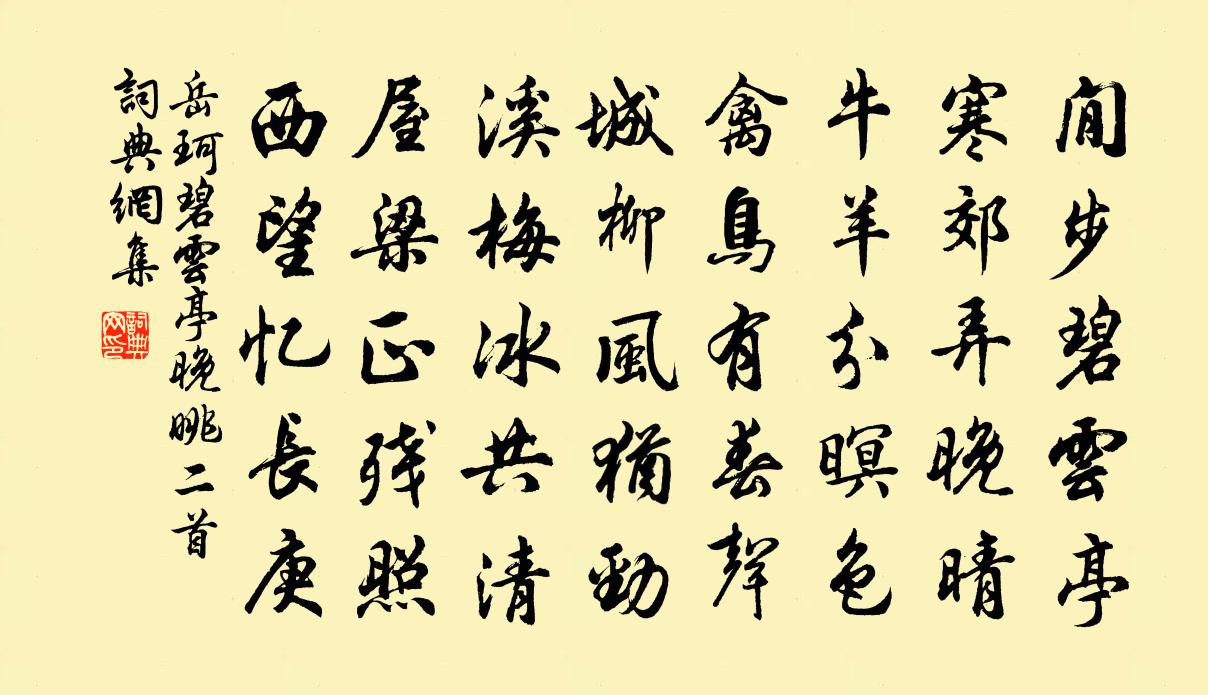 閒步碧雲亭
寒郊弄晚晴
牛羊分暝色
禽鳥有春聲
城柳風猶勁
溪梅冰共清
屋梁正残照
西望忆長庚
岳珂碧雲亭晚眺二首
詞典網集
詞典網印